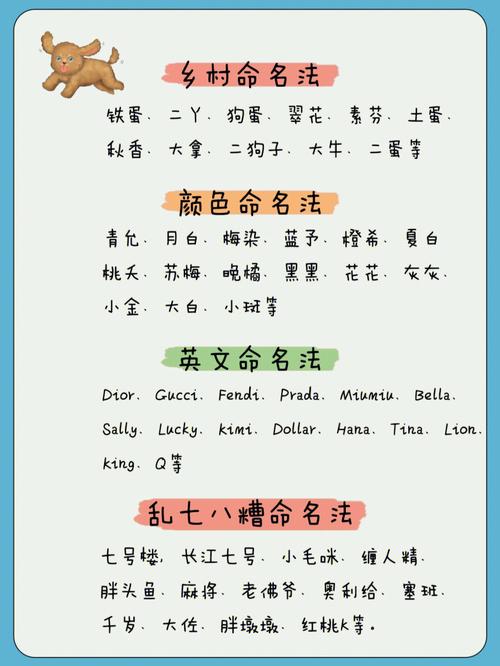 乡村命名法
铁蛋、二丫、狗蛋、翠花、素芬、土蛋、
秋香、大拿、二狗子、大牛、二蛋等
颜色命名法
青允、月白、梅染、蓝予、橙希、夏白
桃夭、苏梅、晚橘、黑黑、花花、灰灰、
小金、大白、小斑等
英文命名法
Dior、Gucci、Fendi、Prada、Miumiu、Bella、
Sally、Lucky、kimi、Dollar、Hana、Tina、Lion、
king、Q等
乱七八糟命名法
七号楼，长江七号、小毛咪、缠人精、
胖头鱼、麻将、老佛爷、奥利给、塞班、
千岁、大佐、胖墩墩、红桃K等。